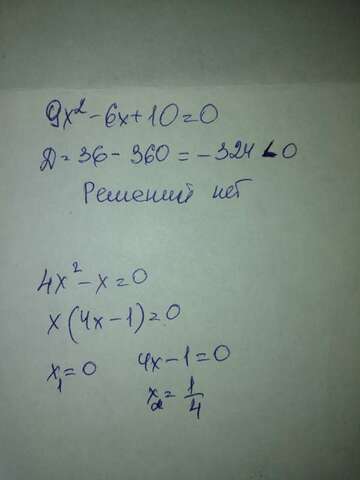 9x² - 6x + 10 = 0
Д = 36 - 360 = -324 < 0
Решений нет
4x² - x = 0
x(4x - 1) = 0
x₁ = 0    4x - 1 = 0
x₂ = 1/4